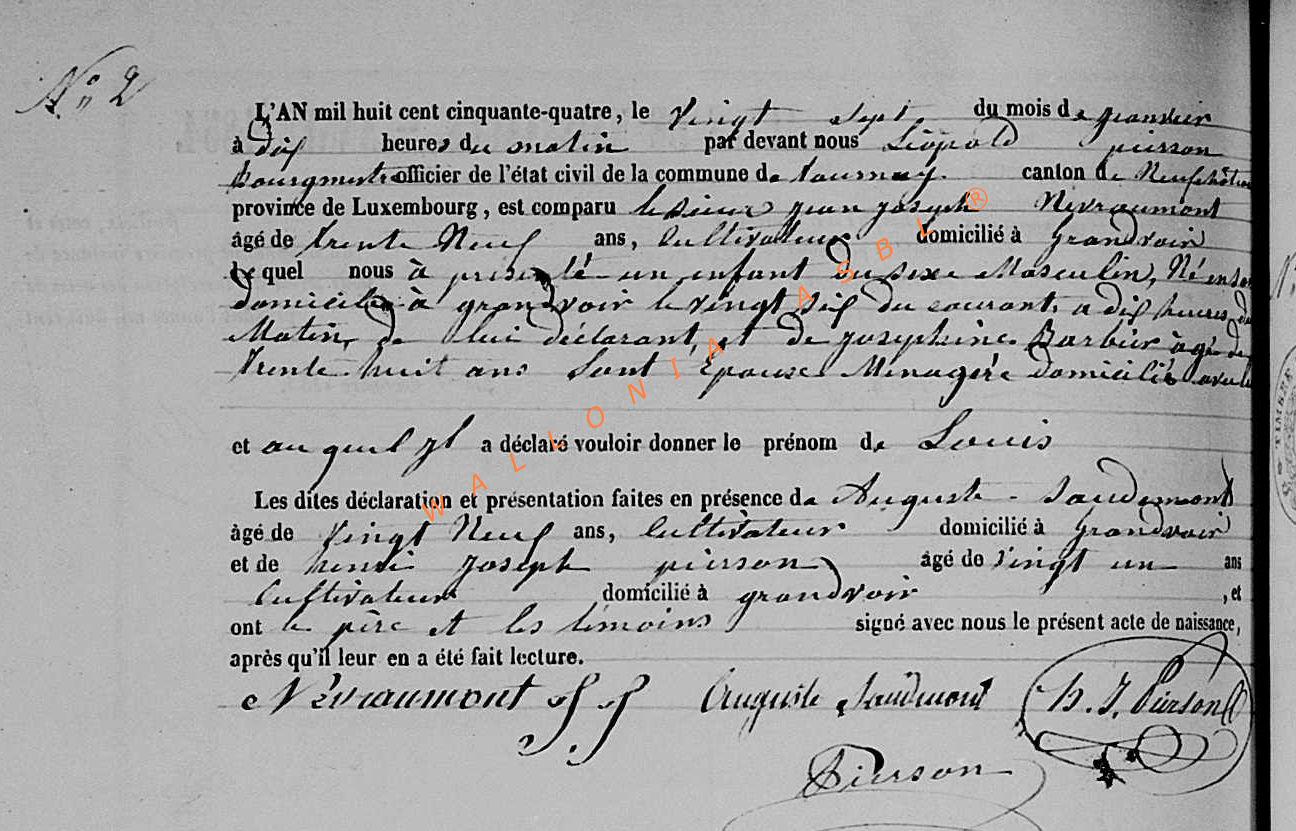 N° 2
L'AN mil huit cent cinquante-quatre, le vingt sept du mois de janvier
à dix heures du matin par devant nous Léopold pierson
Bourgmestre officier de l'état civil de la commune de tournay canton de Neufchâteau
province de Luxembourg, est comparu le sieur jean joseph Nevraumont
âgé de trente Neuf ans, Cultivateur domicilié à grandvoir
le quel nous à presenté un enfant du sexe Masculin, Né en son
domicile à grandvoir le vingt six du courant, a dix heures du
Matin, de lui déclarant, et de josephine Barbier àgé de
trente huit ans sont Épouse Menagère domicilié avec lui
et au quel il a déclaré vouloir donner le prénom de Louis
Les dites déclaration et présentation faites en présence de Auguste Jaudemont
âgé de vingt Neuf ans, Cultivateur domicilié à grandvoir
et de henri joseph pierson âgé de vingt un ans
Cultivateur domicilié à grandvoir , et
ont le père et les témoins signé avec nous le présent acte de naissance,
après qu'il leur en a été fait lecture.
Névraumont J J Auguste Jaudemont H. J. Pierson
Pierson
WALLONIA ASBL ®
TIMBRE